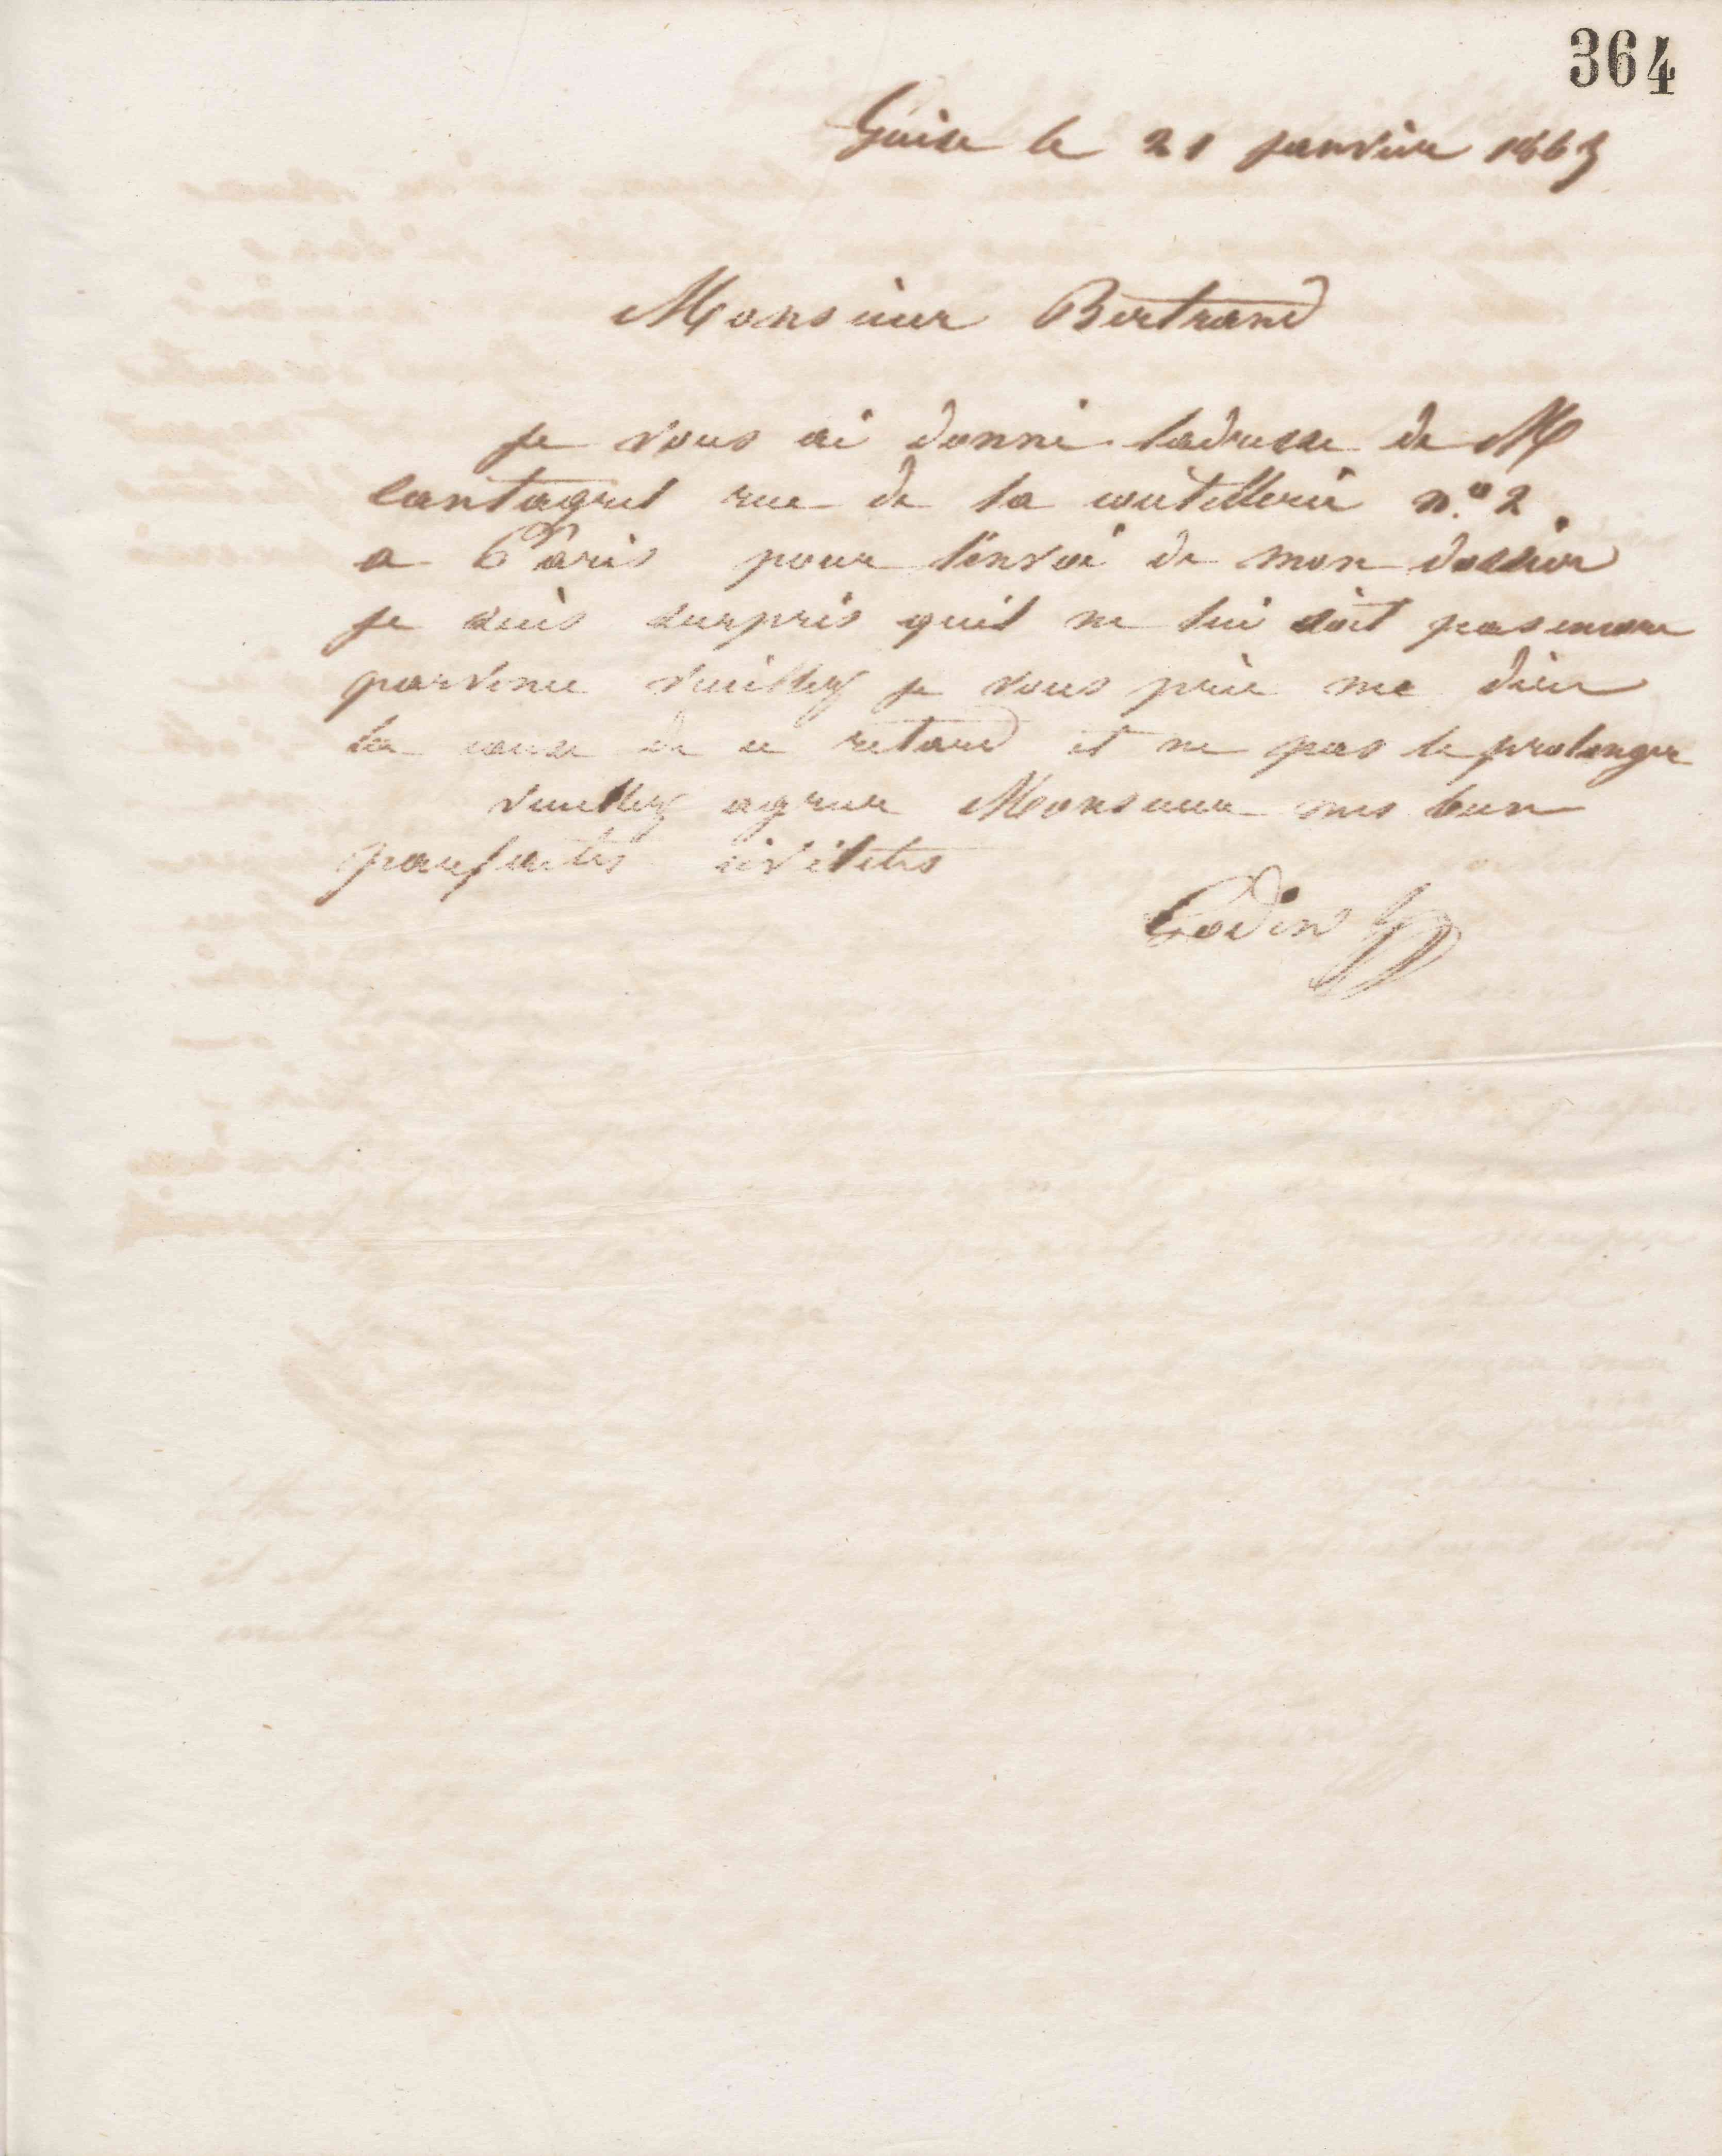 364
Guise le 21 janvier 1863
Monsieur Bertrand
je vous ai donné ladresse de M
Cantagrel rue de la coutellerie n.° 2.
a Paris pour lenvoi de mon dossier
je suis surpris quil ne lui soit pas encore
parvenu veuillez je vous prie me dire
la cause de ce retard et ne pas le prolonger
veuillez agreer Monsieur mes bien
parfaites civilités
Godin